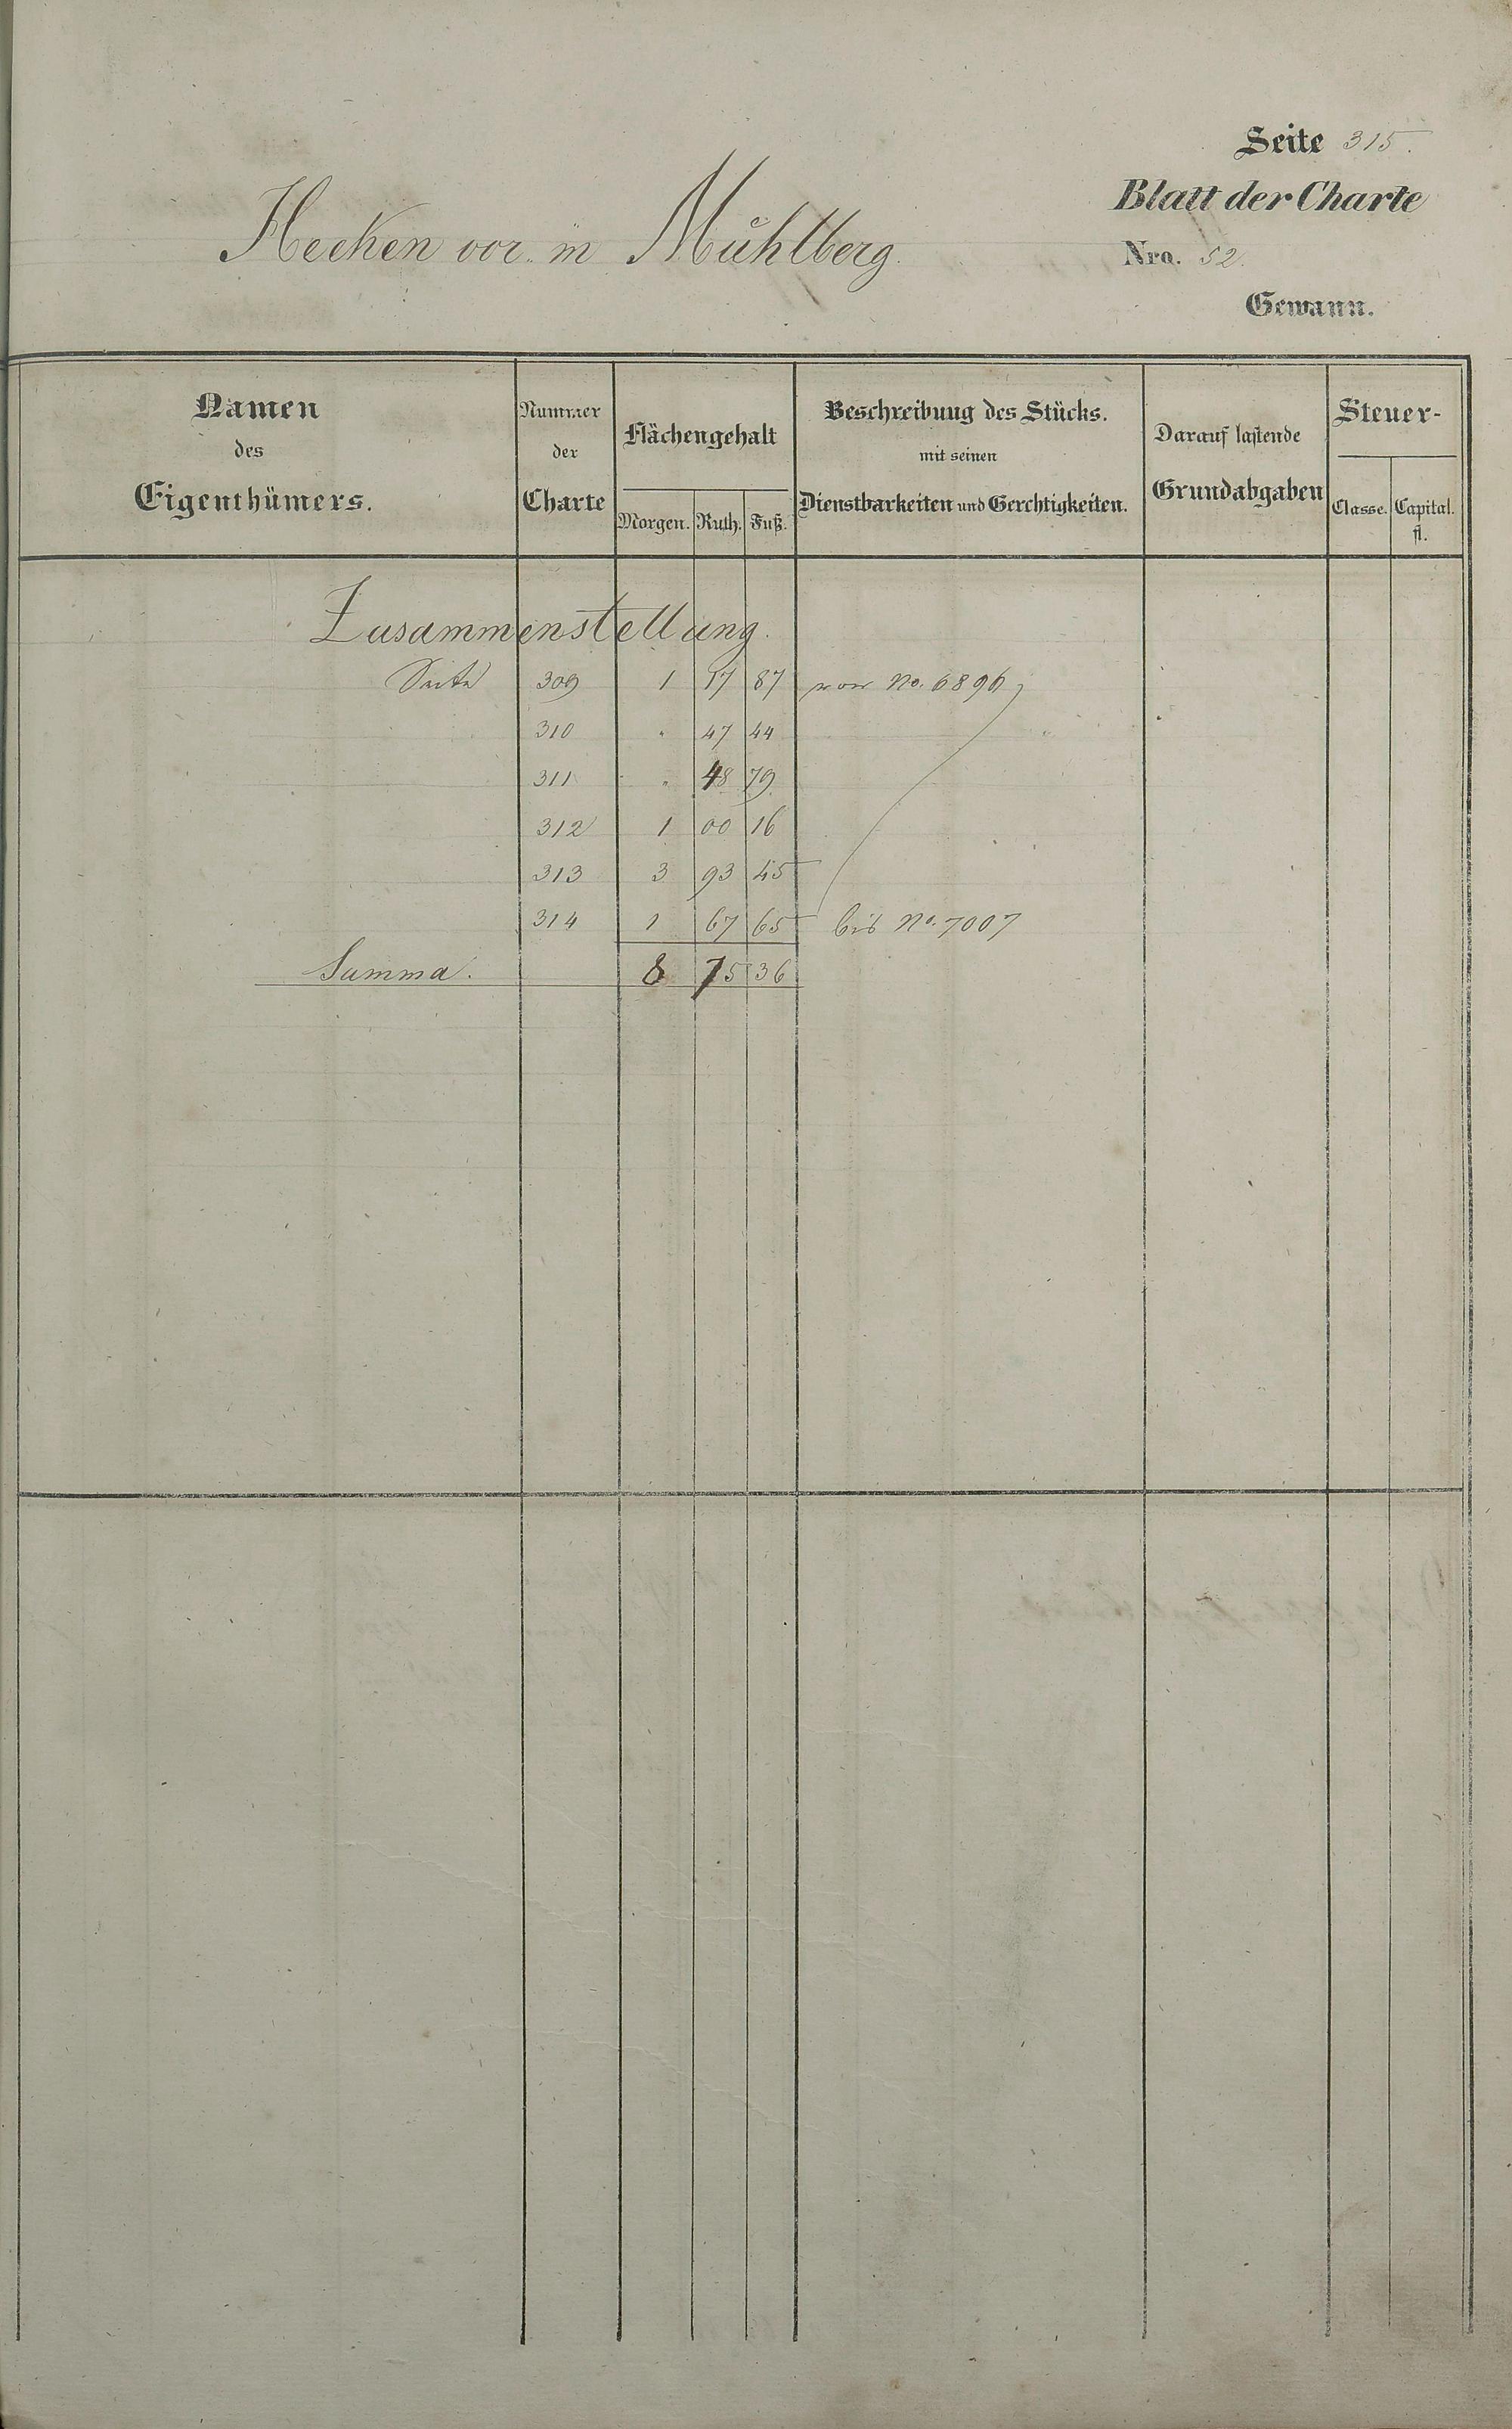 Seite 315.
Blatt der Charte
Hecken vor. in Mühlberg.
Nro. 52.
Gewann.
Namen des Eigenthümers.
Nummer der Charte
Flächengehalt
Morgen. Ruth. Fuß.
Beschreibung des Stücks.
mit seinen
Dienstbarkeiten und Gerechtigkeiten.
Darauf lastende
Grundabgaben
Steuer-
Classe. Capital.
fl.
Zusammenstellung.
Seite 309 1 17 87 von No. 6896
310 " 47 44
311 " 48 79
312 1 00 16
313 3 93 45
314 1 67 65 bis No. 7007
Summa. 8 75 36